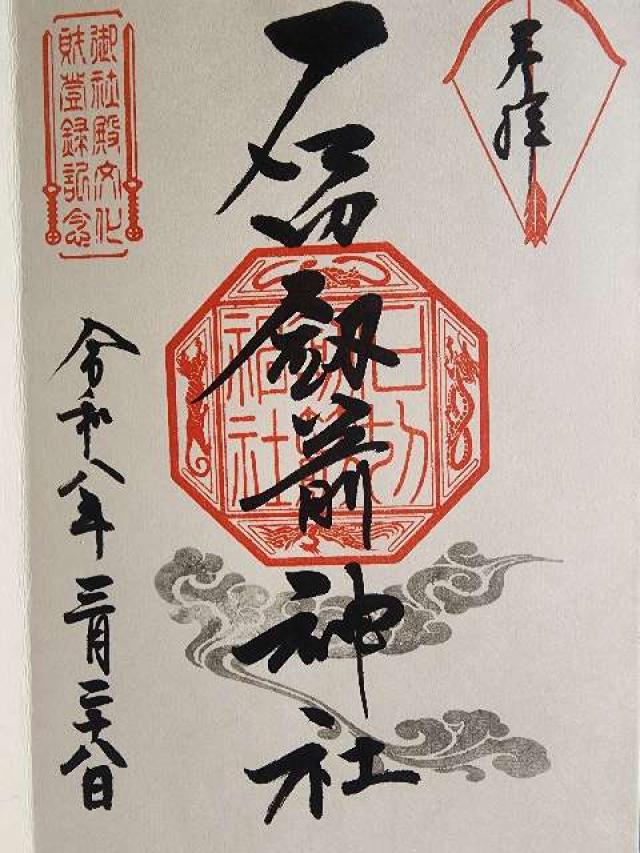 奉拝
石切劔箭神社
石切
劔箭
神社
御社殿文化
財登録記念
令和八年三月二十八日